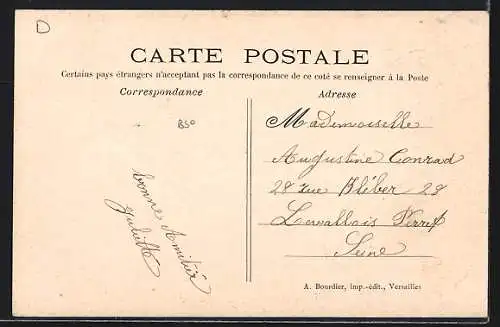 D
CARTE POSTALE
Certains pays étrangers n'acceptant pas la correspondance de ce coté se renseigner à la Poste
Correspondance
Adresse
850
Mademoiselle
Augustine Conrad
28 rue Kléber 28
Levallois Perret
Seine
bonne Amitié
Juliette
A. Bourdier, imp.-édit., Versailles